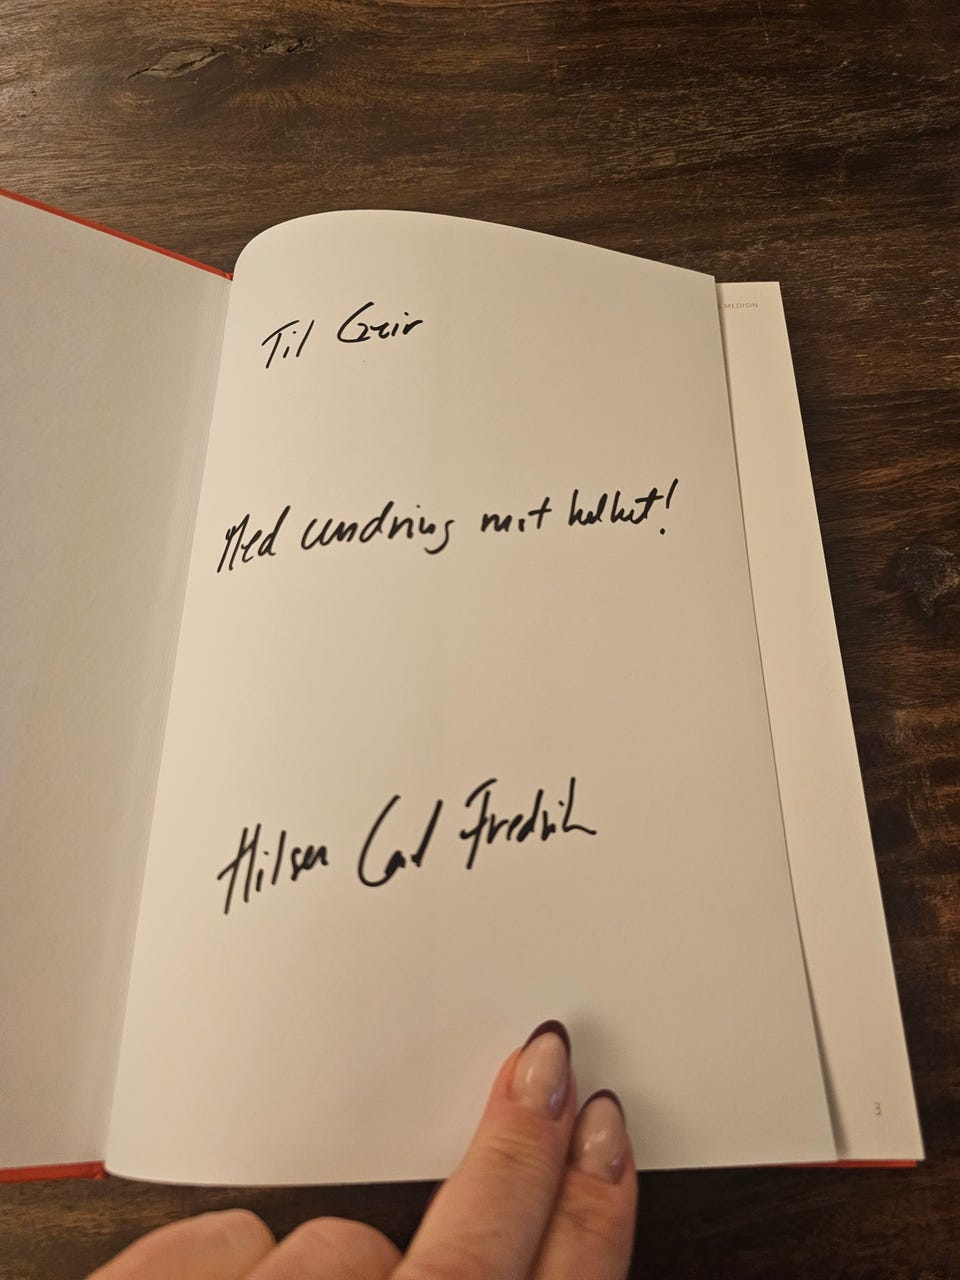 Til Geir
MEDISIN
Med undring mot helhet!
Hilsen Carl Fredrik
3